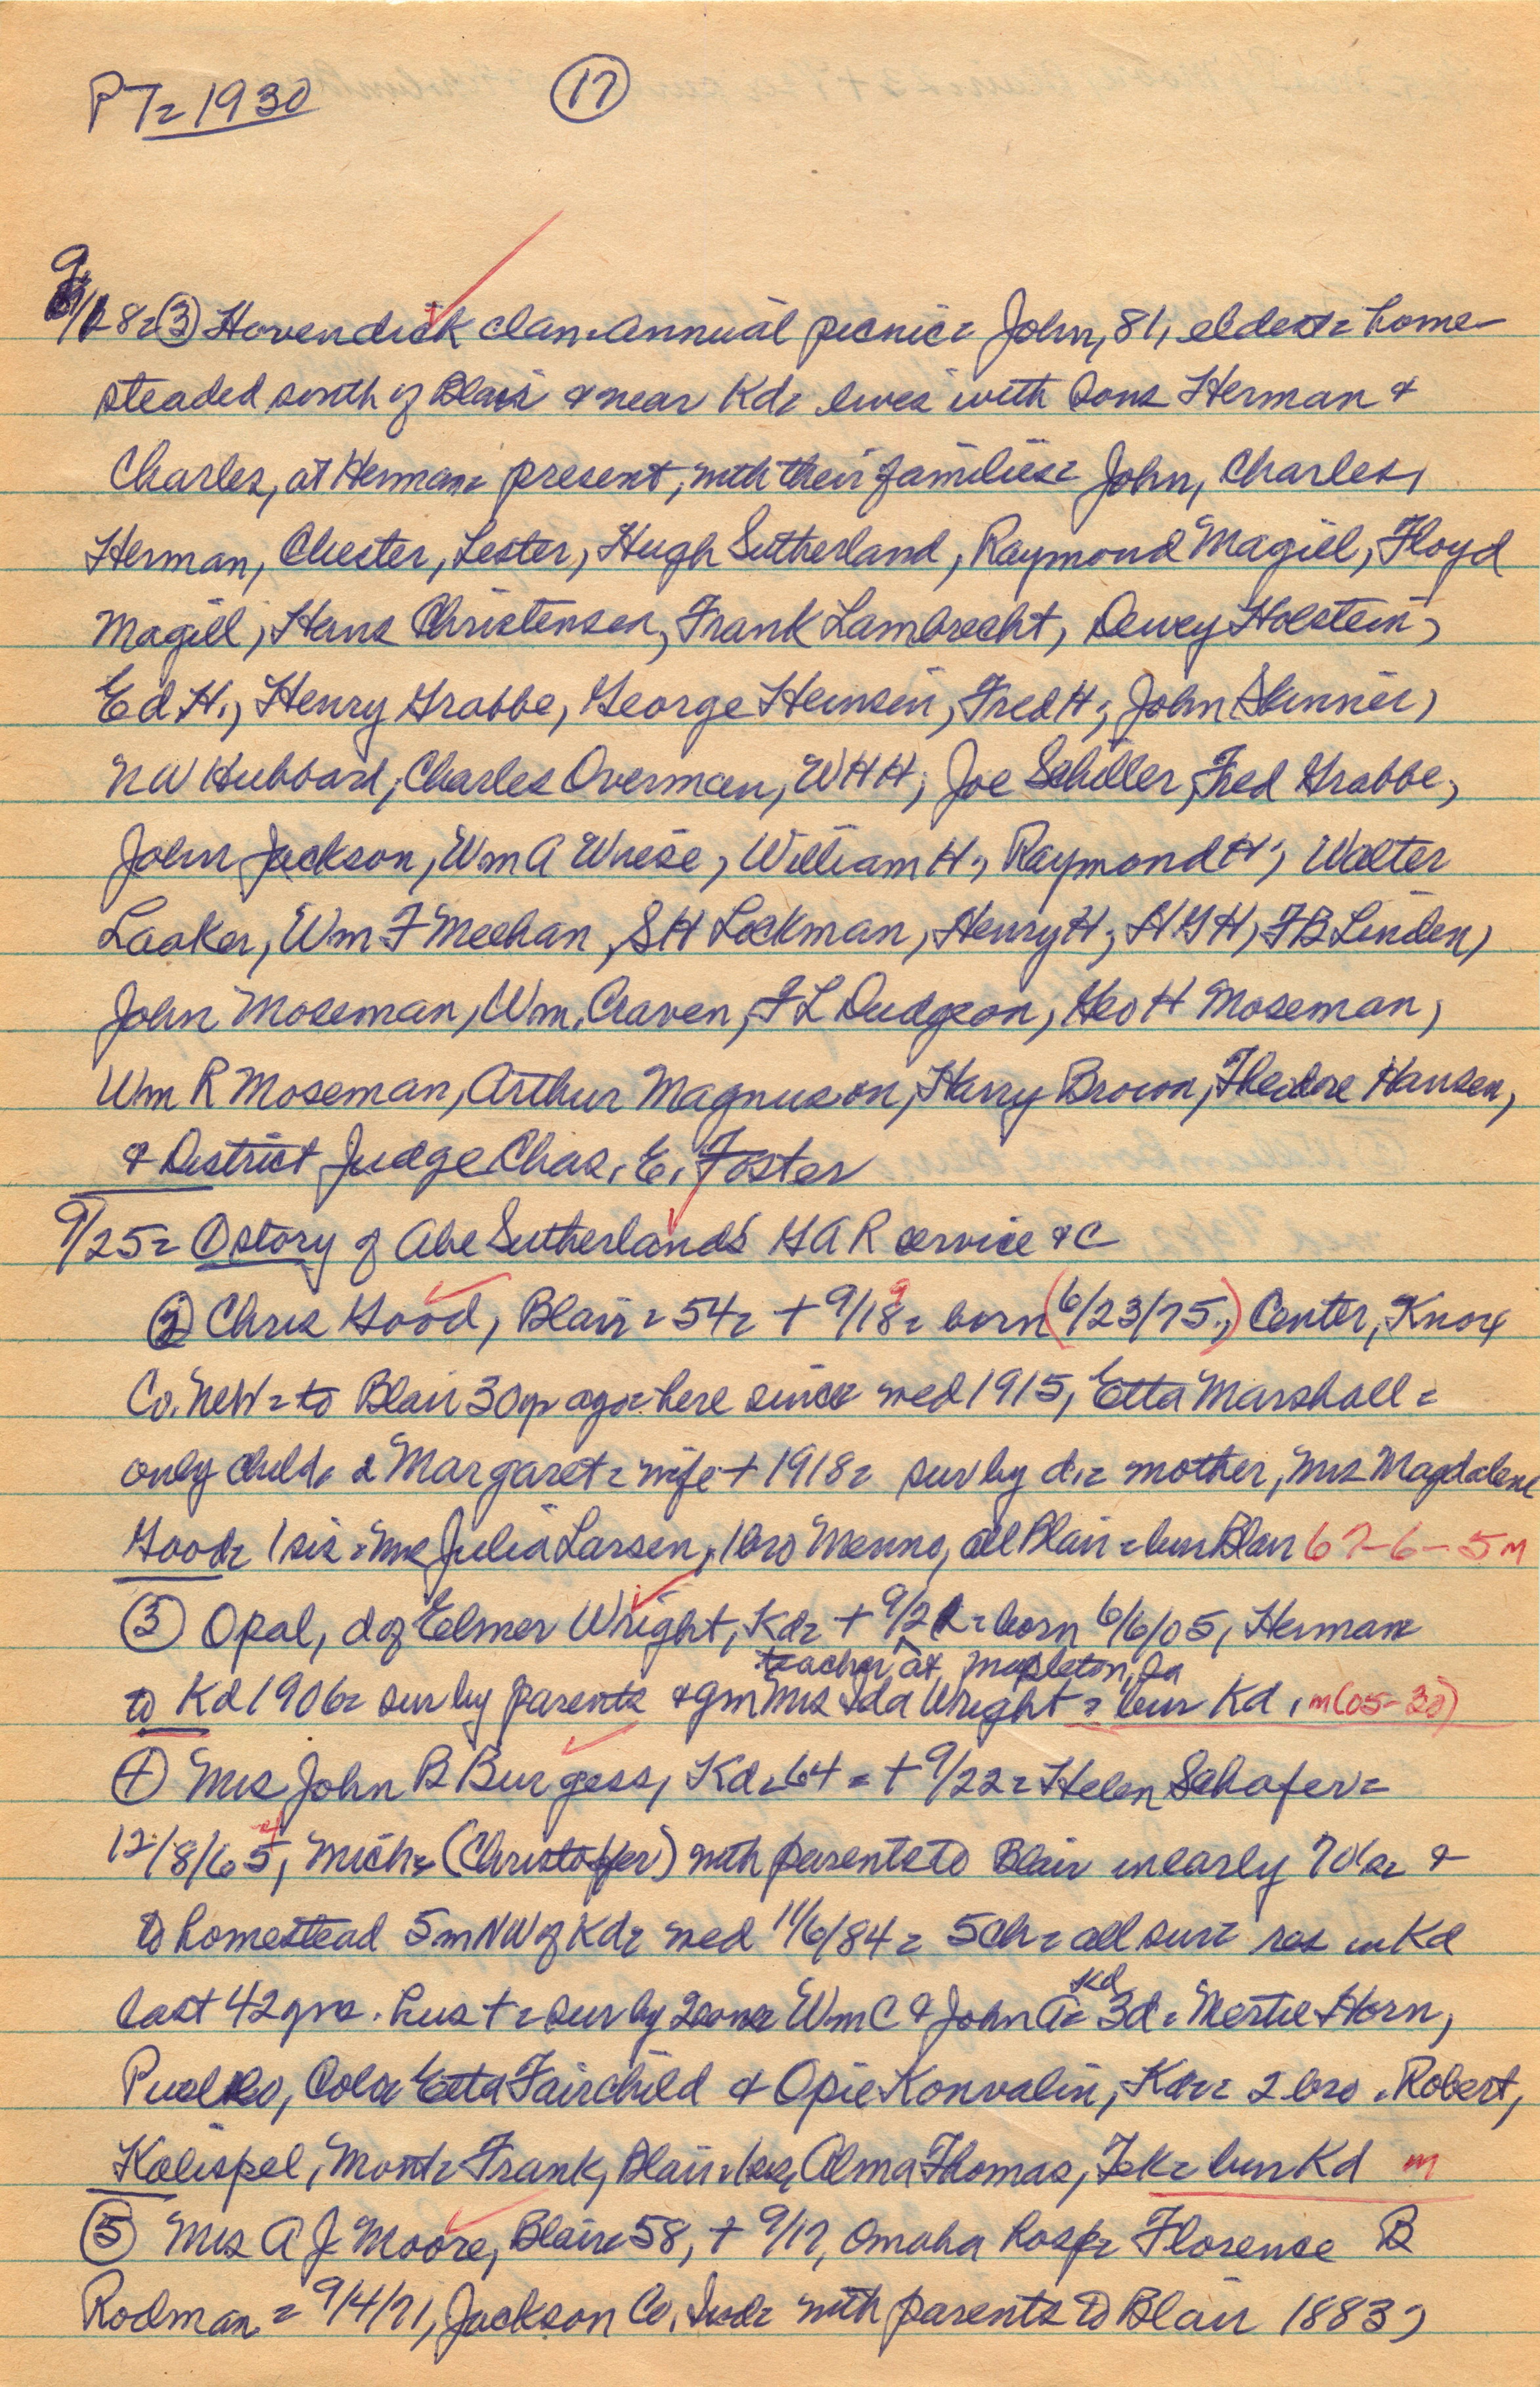 PT= 1930 17
9/18= ③ Hovendick clan Annual picnic= John, 81, eldest= home-
steaded south of Blair & near Kd= lives with sons Herman &
Charles, at Herman= present, with their families= John, Charles,
Herman, Chester, Lester, Hugh Sutherland, Raymond Magill, Floyd
Magill, Hans Christensen, Frank Lambrecht, Dewey Holstein,
Ed H., Henry Grabbe, George Heinsen, Fred H., John Skinner,
N W Hubbard, Charles Overman, W H H, Joe Schiller, Fred Grabbe,
John Jackson, Wm A Wriese, William H., Raymond H., Walter
Laaker, Wm F Meehan, S H Lockman, Henry H, H G H, F B Linden,
John Moseman, Wm. Craven, F L Dudgeon, Geo H Moseman,
Wm R Moseman, Arthur Magnuson, Harry Brown, Theodore Hansen,
& District Judge Chas. E. Foster
9/25= ① story of Abe Sutherland's G A R service &c
② Chris Good, Blair= 54= + 9/18= 9 born (6/23/75,) Center, Knox
Co. NeW= to Blair 30 yr ago= here since med 1915, Etta Marshall=
only child, d Margaret= wife + 1918= sur by d.= mother, Mrs Magdalene
Good= 1 sis= Mrs Julia Larsen, 1 bro Menno, all Blair= bur Blair 67-6-5 M
③ Opal, d of Elmer Wright, Kd= + 9/21= born 6/6/05, Herman
teacher at Mapleton, Ia
to Kd 1906= sur by parents & gm Mrs Ida Wright= bur Kd, m(05-30)
④ Mrs John B Burgess, Kd= 64= + 9/22= Helen Schafer=
12/8/65, 4 Mich= (Christoffer) with parents to Blair in early 70's= &
to homestead 5 m NW of Kd= med 11/6/84= 5 ch= all sur= res in Kd
last 42 yrs. hus += sur by 2 sons Wm C & John A= Kd 3d= Mertie Horn,
Pueblo, Colo= Etta Fairchild & Opie Konvalin, Kd= 2 bro. Robert,
Kalispel, Mont= Frank, Blair= 1 sis, Alma Thomas, Tek= bur Kd m
⑤ Mrs A J Moore, Blair= 58, + 9/17, Omaha hosp= Florence B
Rodman= 9/4/71, Jackson Co. Ind= with parents to Blair 1883,